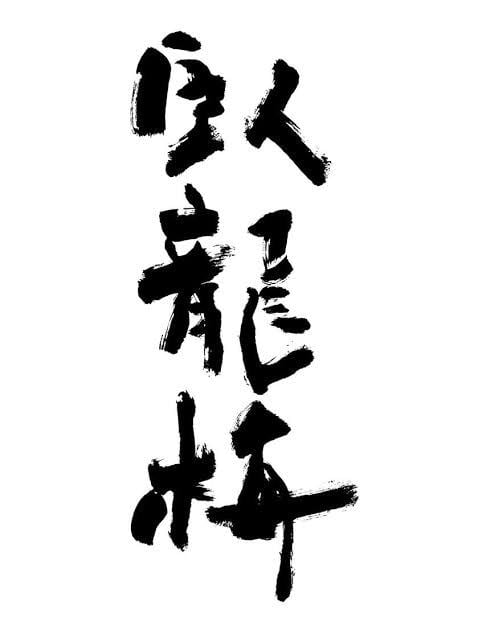 臥龍梅